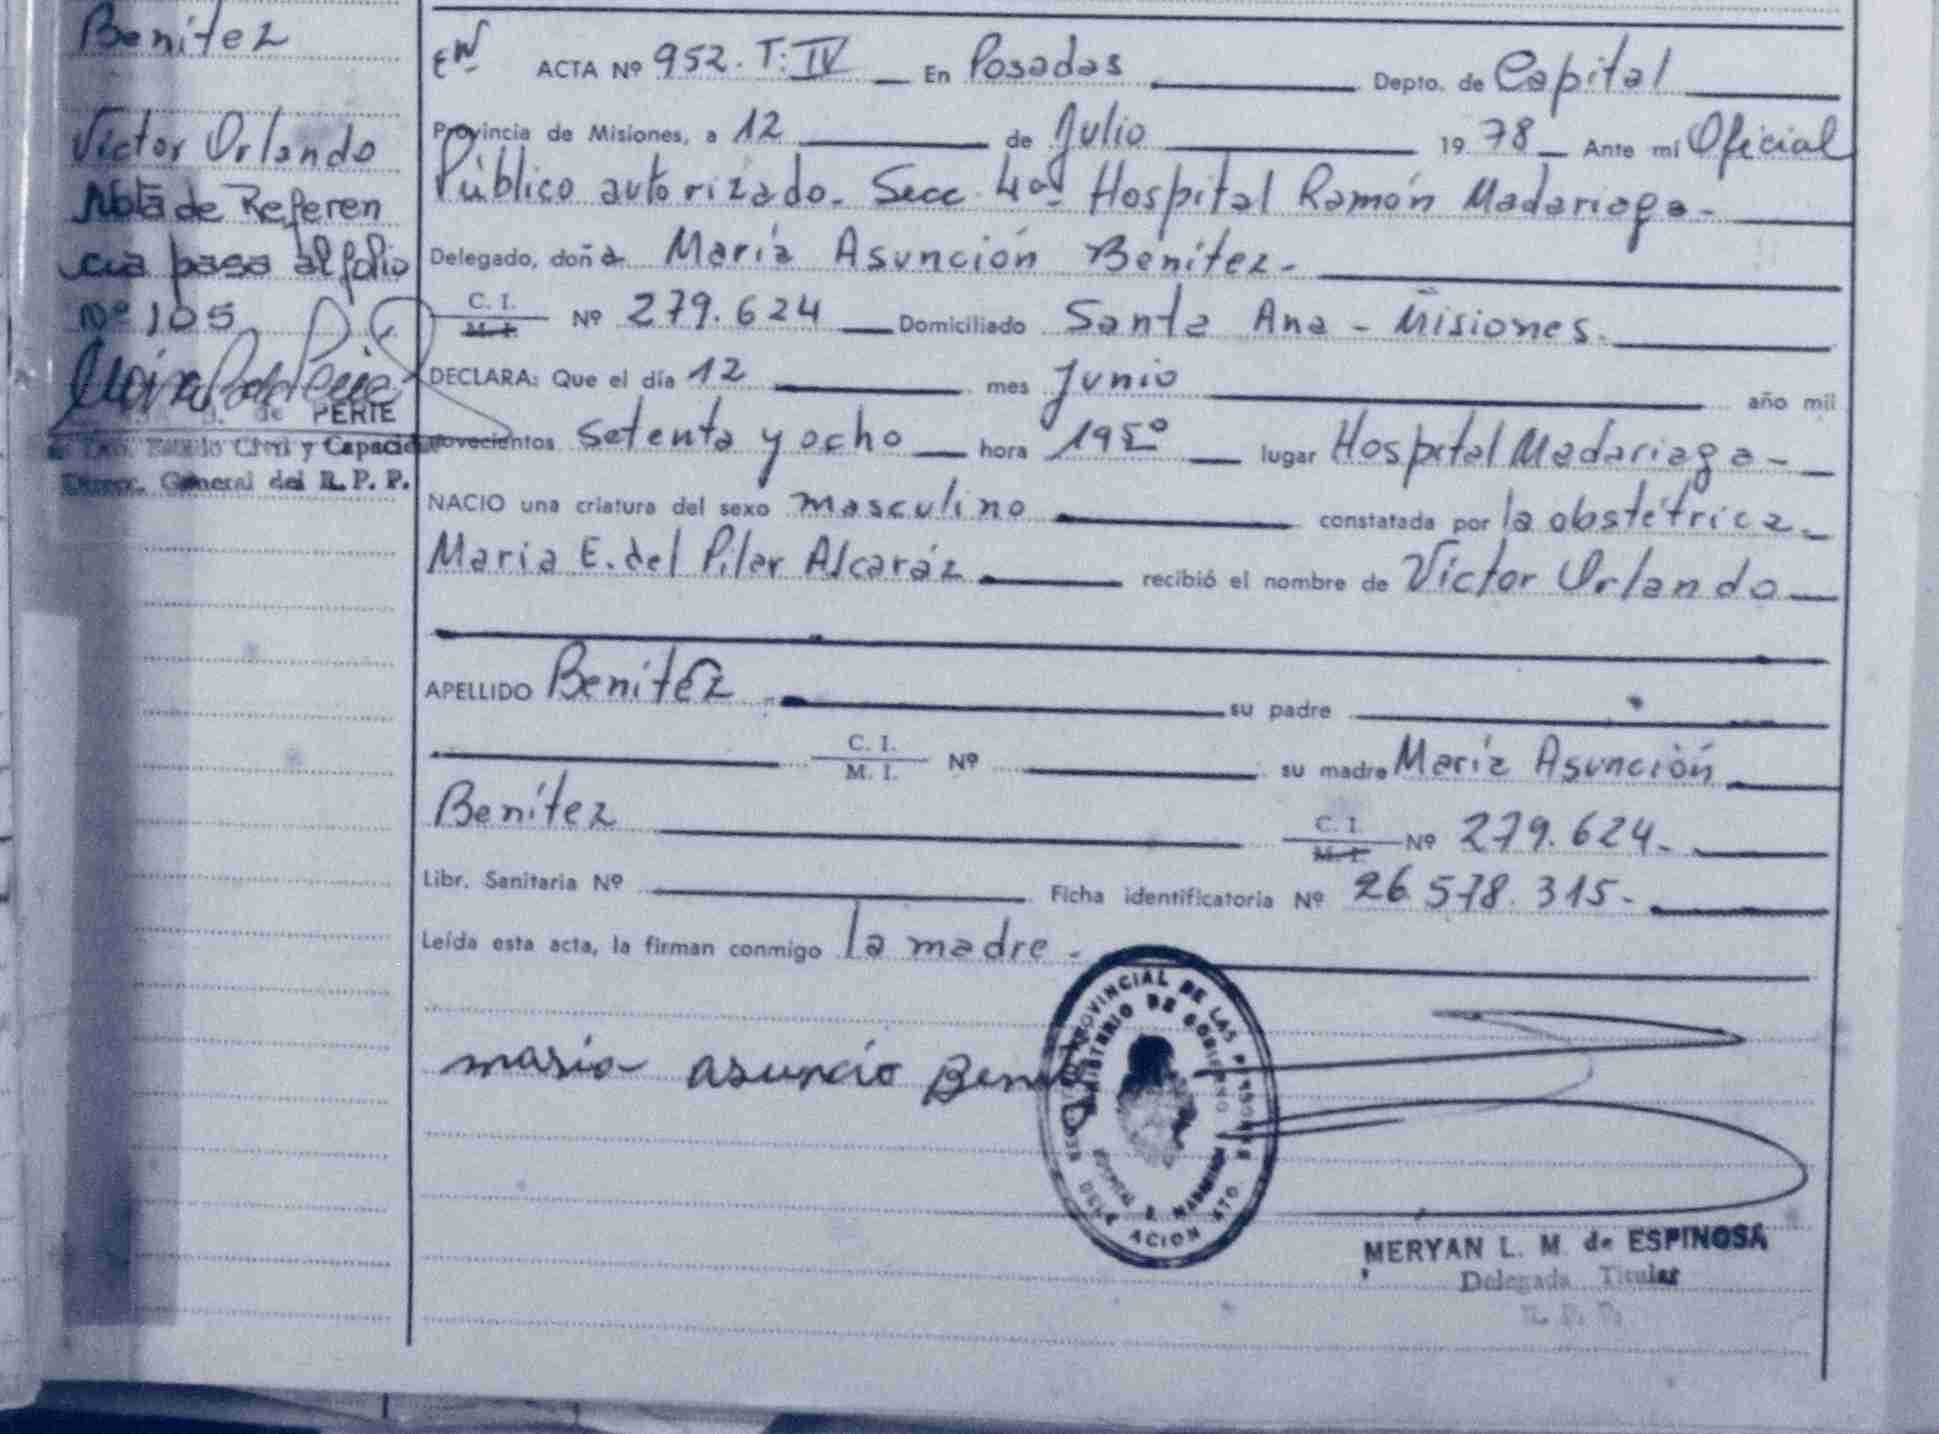 Benítez
Víctor Orlando
Nota de Referen
cia pasa al folio
Nº 105
de PERTE
Estado Civil y Capacid
Direcc. General del R. P. P.
ACTA Nº 952. T: IV En Posadas Depto. de Capital
Provincia de Misiones, a 12 de Julio 19 78 Ante mí Oficial
Público autorizado. Secc. 4ª Hospital Ramón Madariaga.
Delegado, doña María Asunción Benítez.
C. I. M. I. Nº 279.624 Domiciliado Santa Ana - Misiones.
DECLARA: Que el día 12 mes Junio año mil
novecientos setenta y ocho hora lugar Hospital Madariaga
NACIO una criatura del sexo masculino constatada por la obstétrica
María E. del Pilar Alcaráz recibió el nombre de Víctor Orlando
APELLIDO Benítez su padre
C. I. M. I. Nº su madre María Asunción
Benítez C. I. M. I. Nº 279.624
Libr. Sanitaria Nº Ficha identificatoria Nº 26.578.315
Leída esta acta, la firman conmigo la madre
maria asuncio Beni
PROVINCIAL DE LAS PERSONAS
MINISTERIO DE GOBIERNO
HOSPITAL R. MADARIAGA
MERYAN L. M. de ESPINOSA
Delegada Titular
R. P. P.